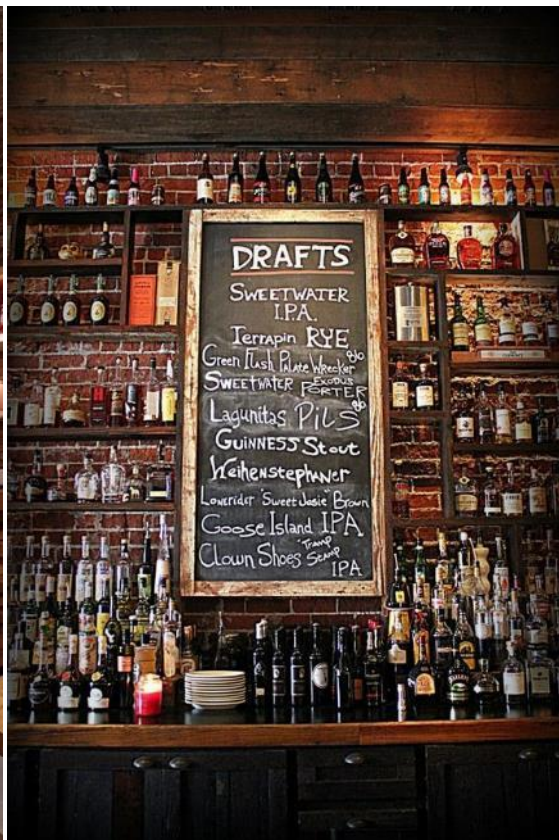 DRAFTS
SWEETWATER
I.P.A.
Terrapin RYE
Green Flash Palate Wrecker
SWEETWATER EXODUS PORTER
Lagunitas PILS
GUINNESS Stout
Weihenstephaner
Lonerider "Sweet Josie" Brown
Goose Island IPA
Clown Shoes "Tramp Stamp
IPA